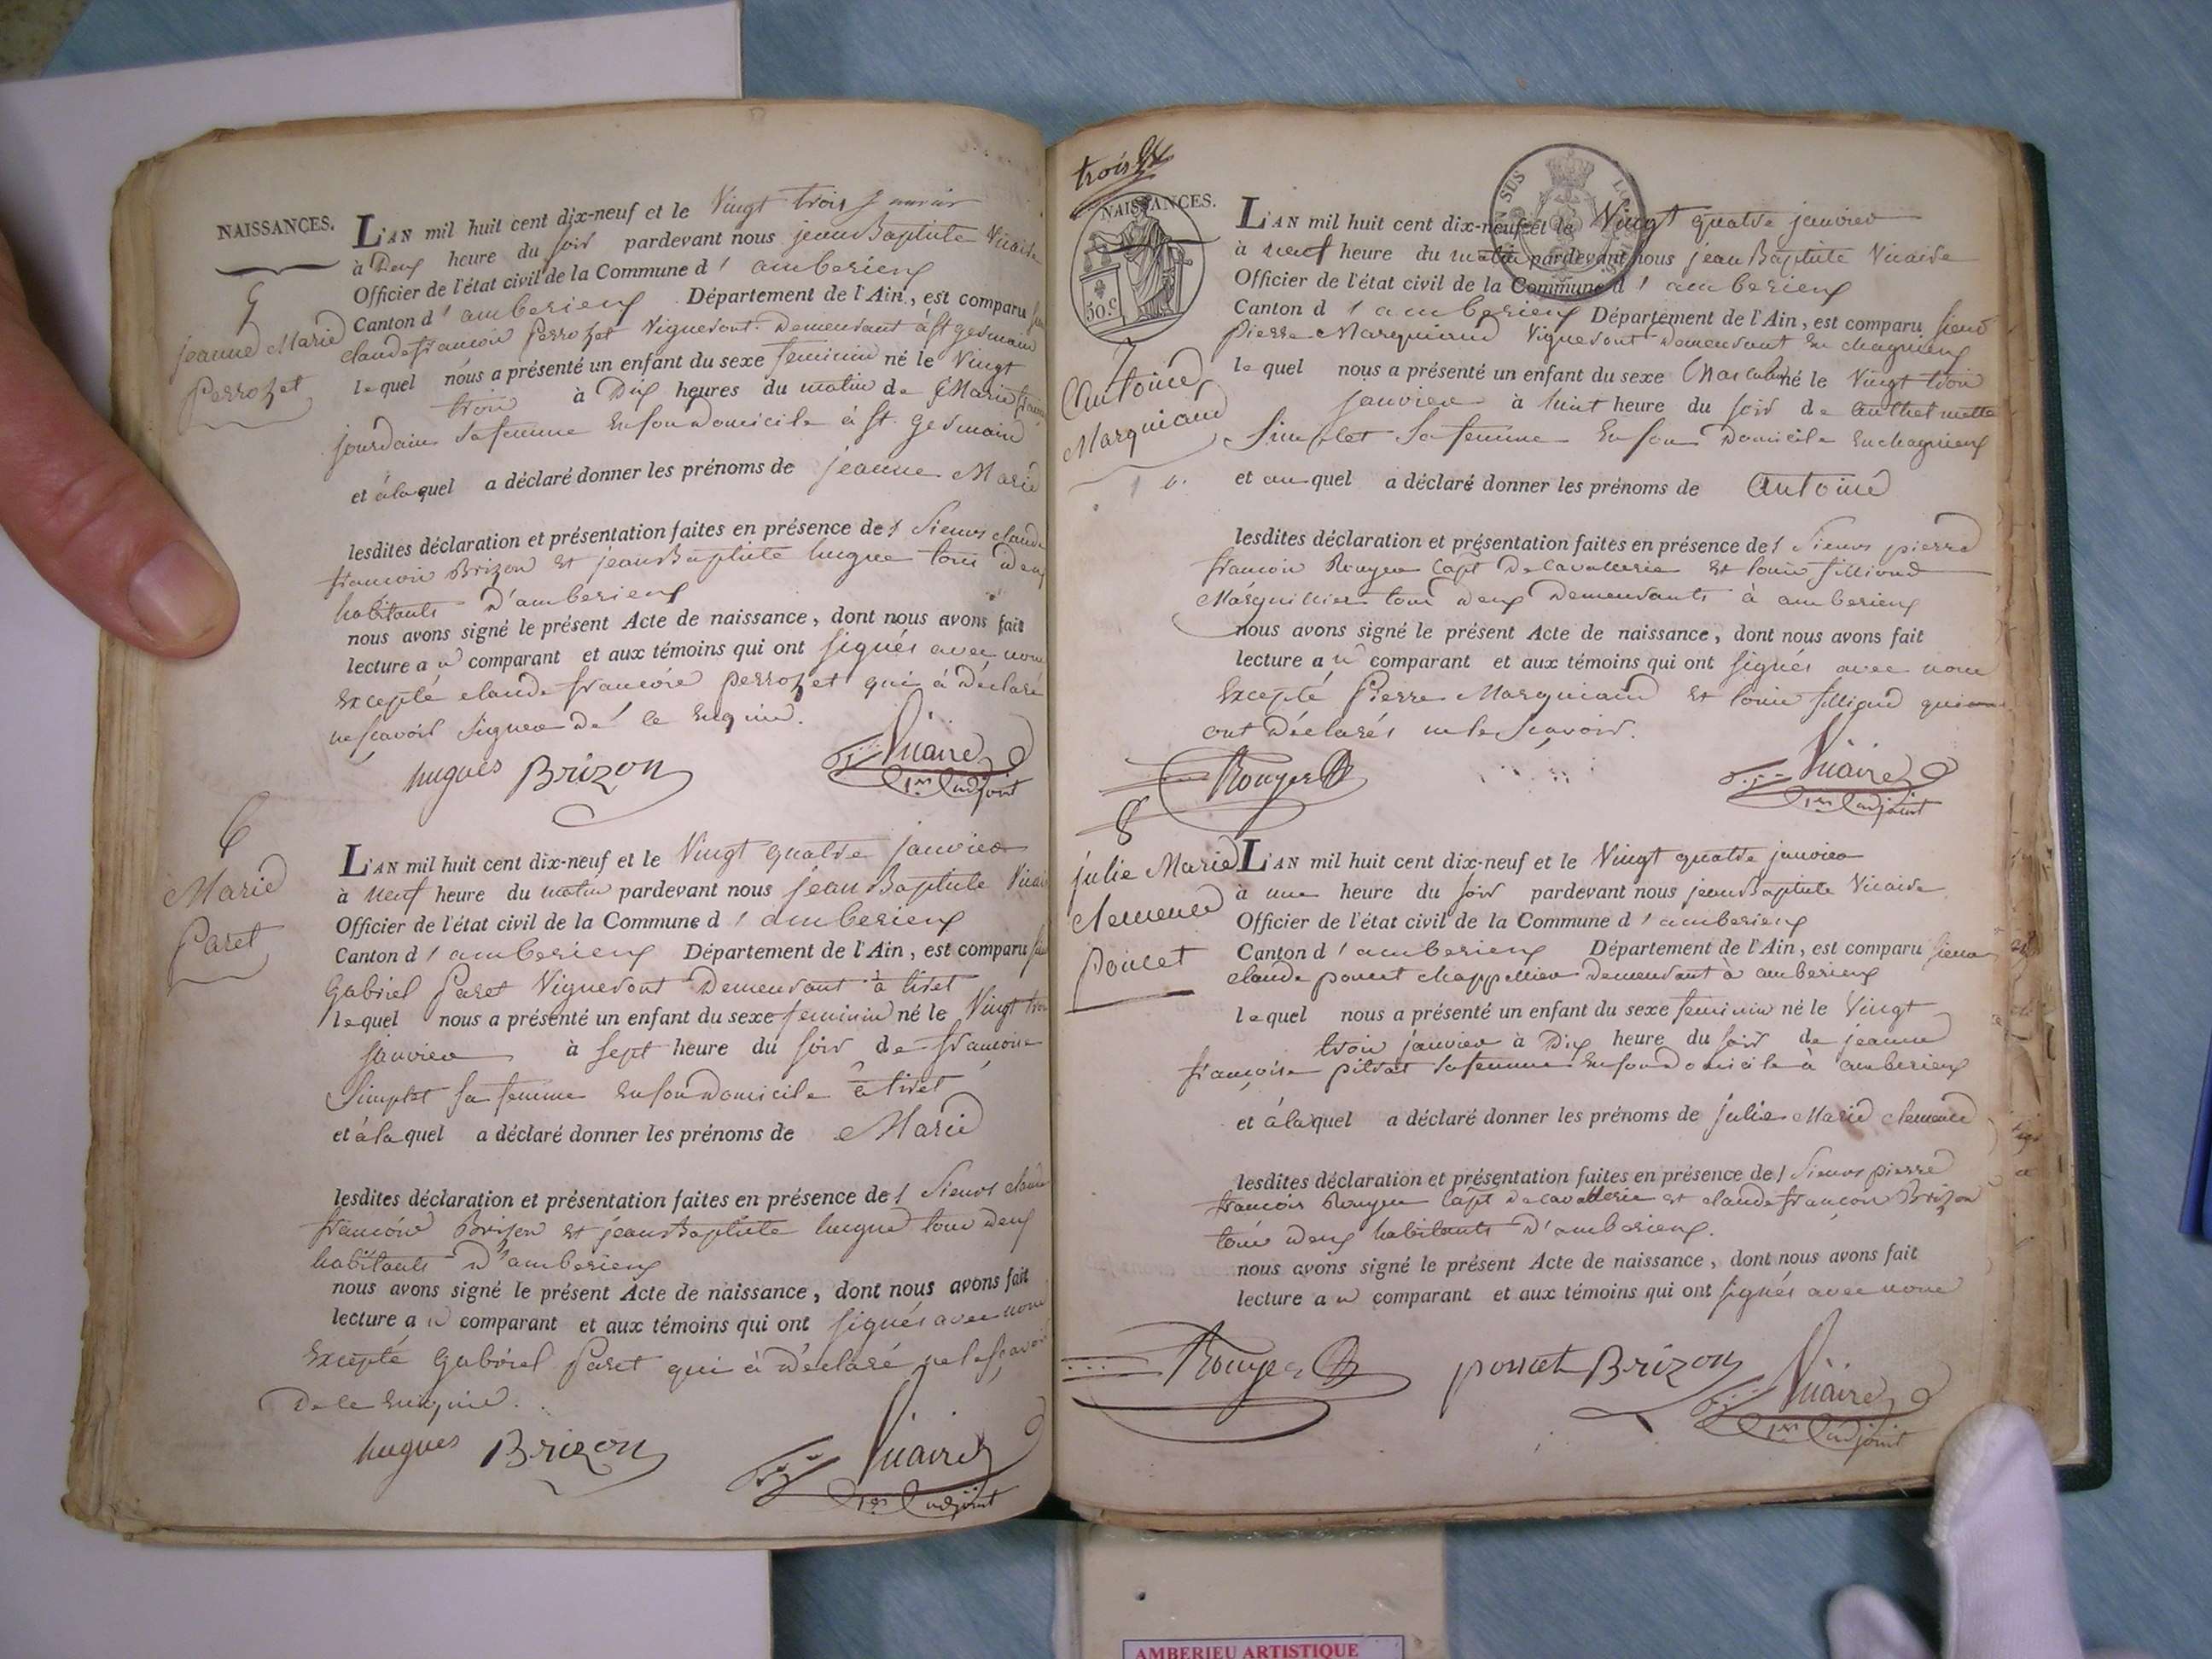 NAISSANCES.
5
jeanne Marie
Perrozet
L'AN mil huit cent dix-neuf et le Vingt trois janvier
à Deux heure du soir pardevant nous jean Baptiste Vicaire
Officier de l'état civil de la Commune d' amberieux
Canton d' amberieux Département de l'Ain, est comparu
claude francois Perrozet Vigneront Demeurant à St germain
lequel nous a présenté un enfant du sexe feminin né le Vingt
trois à Dix heures du matin de Marie
jourdain sa femme En son Domicile à St. germain
et à laquel a déclaré donner les prénoms de jeanne Marie
lesdites déclaration et présentation faites en présence des Sieurs claude
francois Brizon et jean Baptiste hugue tous deux
habitants D'amberieux
nous avons signé le présent Acte de naissance, dont nous avons fait
lecture au comparant et aux témoins qui ont signés avec nous
Excepté claude francois perrozet qui à Déclaré
ne scavoir signer de ce Enquis.
hugues Brizon Vicaire
1er adjoint
6
Marie
Paret
L'AN mil huit cent dix-neuf et le Vingt quatre janvier
à neuf heure du matin pardevant nous jean Baptiste Vicaire
Officier de l'état civil de la Commune d' amberieux
Canton d' amberieux Département de l'Ain, est comparu
Gabriel Paret Vigneront Demeurant à tiret
lequel nous a présenté un enfant du sexe feminin né le Vingt trois
janvier à sept heure du soir de francoise
Simplet sa femme En son Domicile à tiret
et à laquel a déclaré donner les prénoms de Marie
lesdites déclaration et présentation faites en présence des Sieurs claude
francois Brizon et jean Baptiste hugue tous deux
habitants D'amberieux
nous avons signé le présent Acte de naissance, dont nous avons fait
lecture au comparant et aux témoins qui ont signés avec nous
Excepté Gabriel Paret qui à Déclaré ne le scavoir
De ce Enquis.
hugues Brizon Vicaire
1er adjoint
trois
NAISSANCES.
50c
7
Antoine
Marquiand
L'AN mil huit cent dix-neuf et le Vingt quatre janvier
à neuf heure du matin pardevant nous jean Baptiste Vicaire
Officier de l'état civil de la Commune d' amberieux
Canton d' amberieux Département de l'Ain, est comparu sieur
Pierre Marquiand Vigneront Demeurant En chagnieux
lequel nous a présenté un enfant du sexe Masculin né le Vingt trois
janvier à huit heure du soir de anthelmette
Simplet sa femme En son Domicile En chagnieux
et auquel a déclaré donner les prénoms de Antoine
lesdites déclaration et présentation faites en présence des Sieurs pierre
francois Rouyer Capt De cavallerie et louis filliond
Marguillier tous deux Demeurants à amberieux
nous avons signé le présent Acte de naissance, dont nous avons fait
lecture au comparant et aux témoins qui ont signés avec nous
Excepté Pierre Marquiand et louis filliond qui
ont Déclarés ne le scavoir.
Rouyer Vicaire
1er adjoint
8
julie Marie
clemence
Poncet
L'AN mil huit cent dix-neuf et le Vingt quatre janvier
à une heure du soir pardevant nous jean Baptiste Vicaire
Officier de l'état civil de la Commune d' amberieux
Canton d' amberieux Département de l'Ain, est comparu sieur
claude poncet chappellier Demeurant à amberieux
lequel nous a présenté un enfant du sexe feminin né le Vingt
trois janvier à Dix heure du soir de jeanne
françoise pilrat sa femme En son Domicile à amberieux
et à laquel a déclaré donner les prénoms de julie Marie clemence
lesdites déclaration et présentation faites en présence des Sieurs pierre
francois Rouyer Capt De cavallerie et claude francois Brizon
tous deux habitants D'amberieux.
nous avons signé le présent Acte de naissance, dont nous avons fait
lecture au comparant et aux témoins qui ont signés avec nous
Rouyer poncet Brizon Vicaire
1er adjoint
AMBERIEU ARTISTIQUE